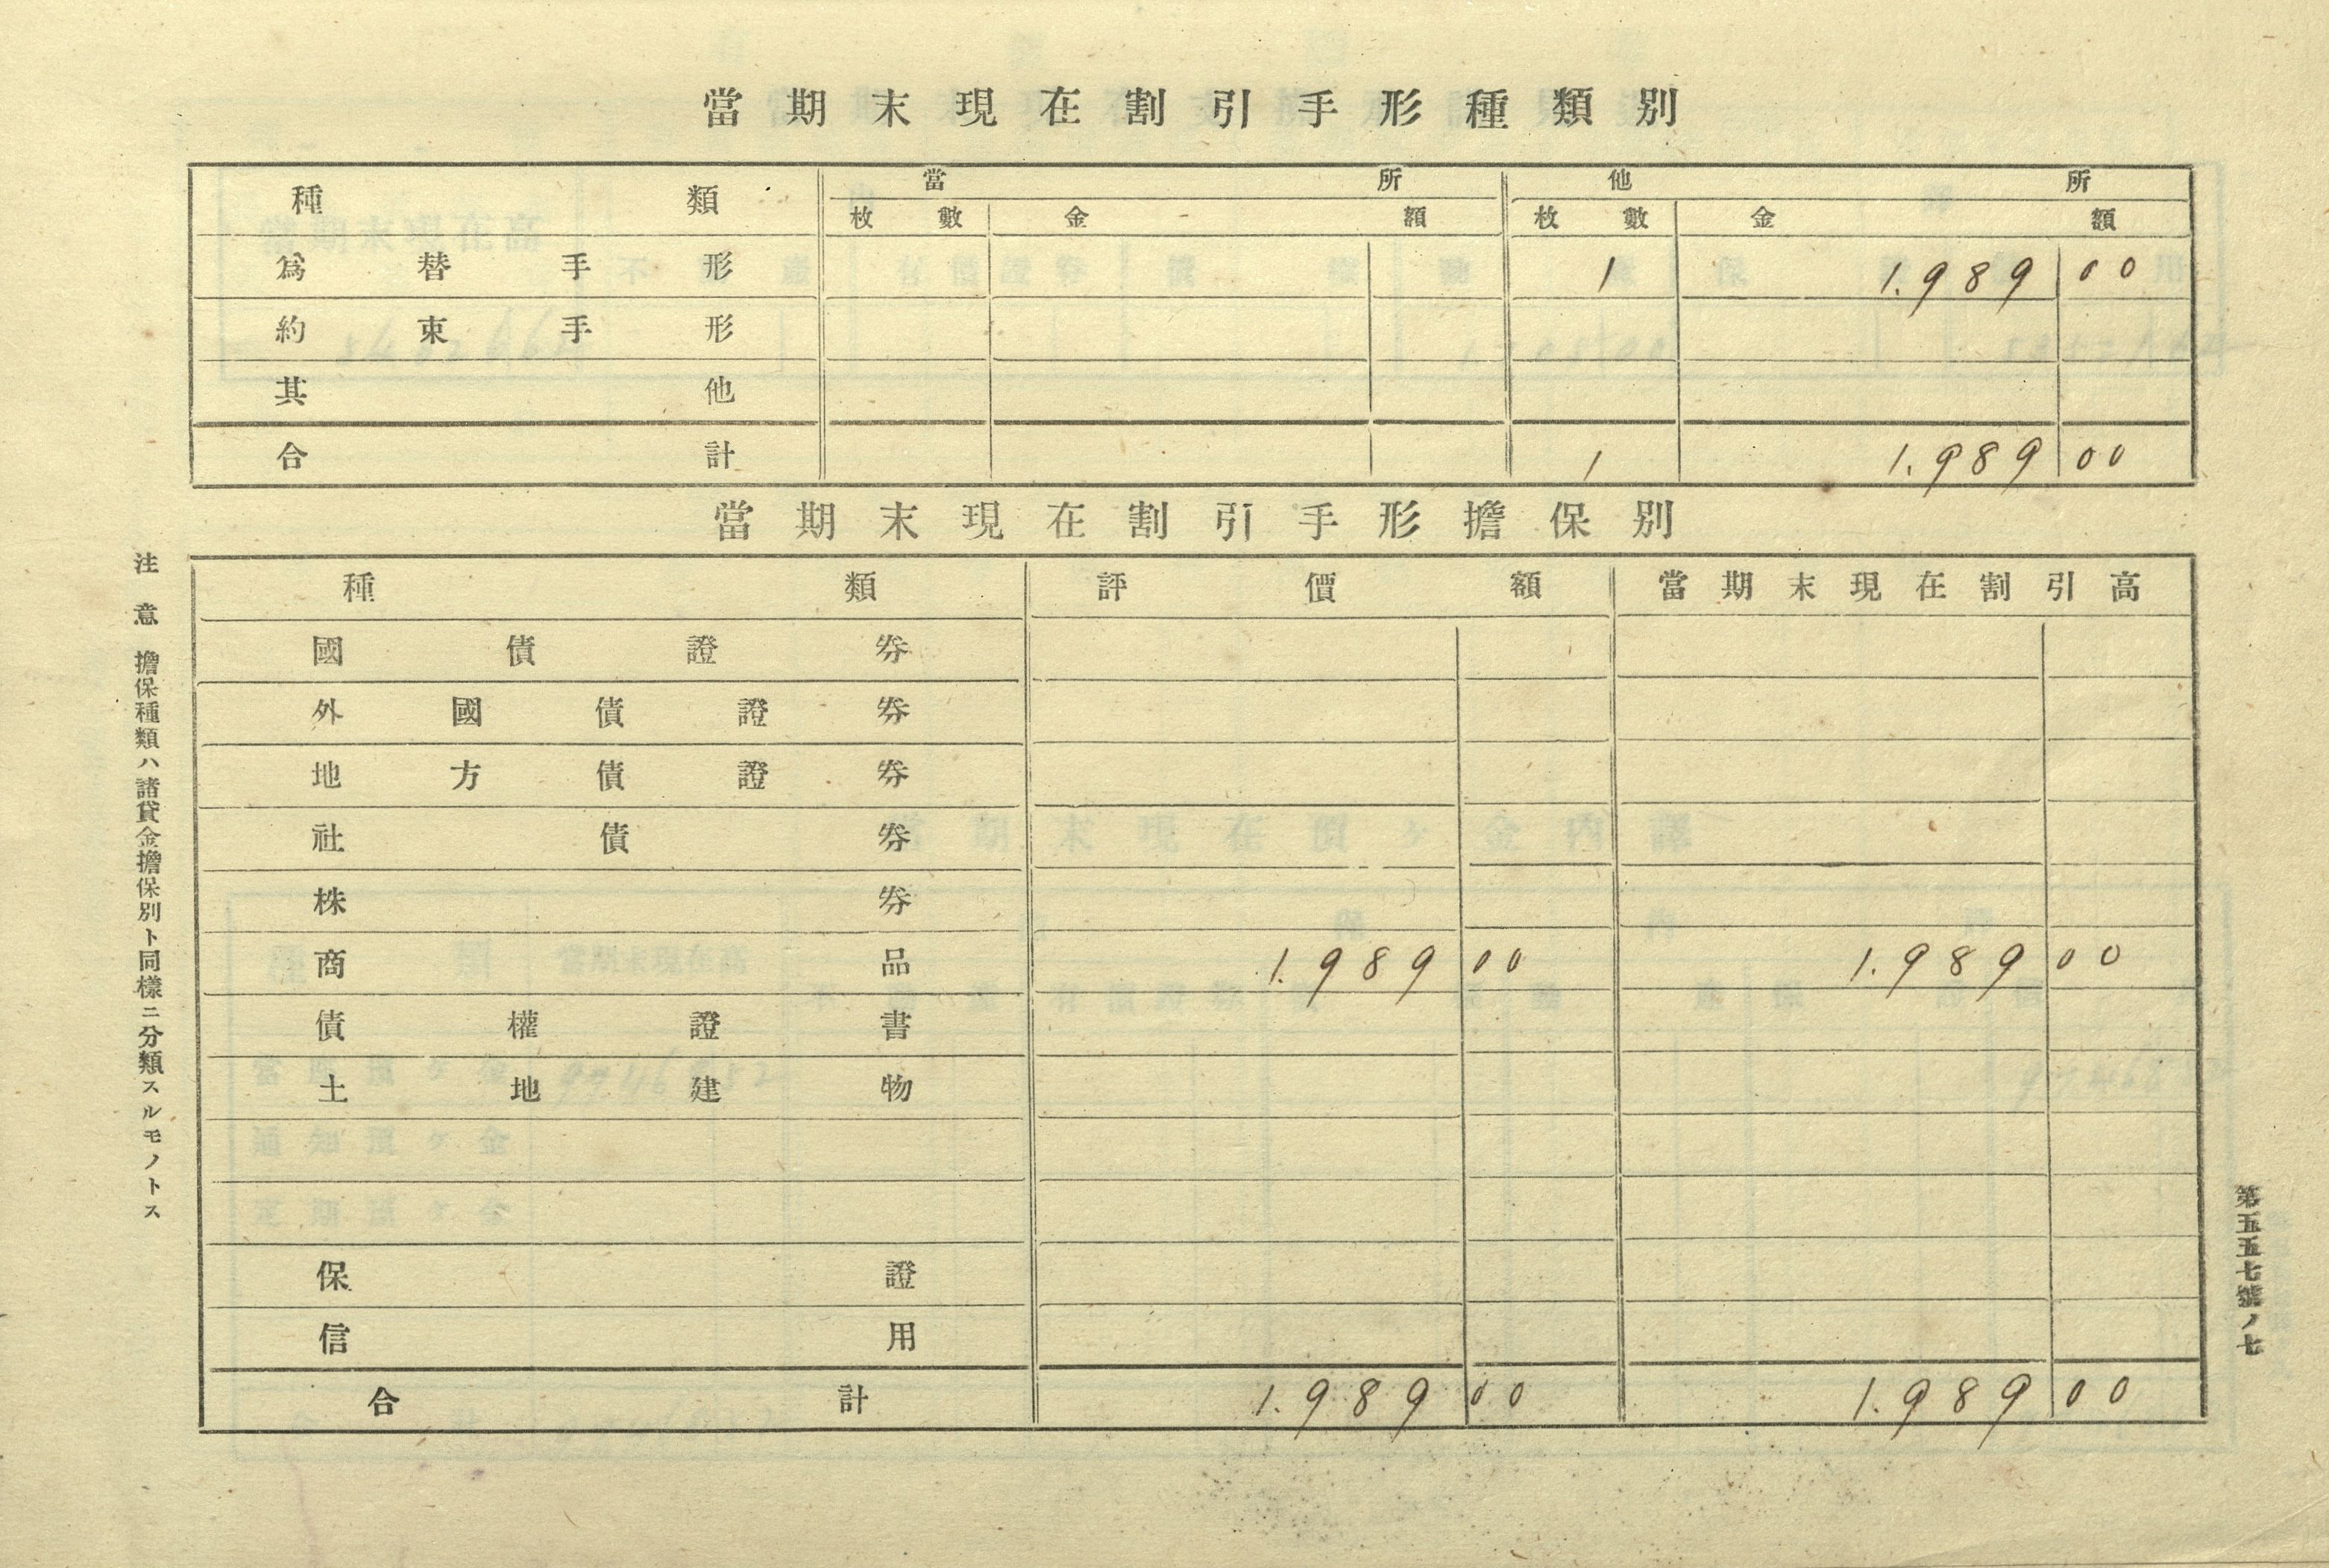 當期末現在割引手形種類別
種類 當所 他所
枚數 金額 枚數 金額
爲替手形 1 1.989 00
約束手形
其他
合計 1 1.989 00
當期末現在割引手形擔保別
種類 評價額 當期末現在割引高
國債證券
外國債證券
地方債證券
社債券
株券
商品 1.989 00 1.989 00
債權證書
土地建物
保證
信用
合計 1.989 00 1.989 00
注意 擔保種類ハ諸貸金擔保別ト同樣ニ分類スルモノトス
第五五七號ノ七